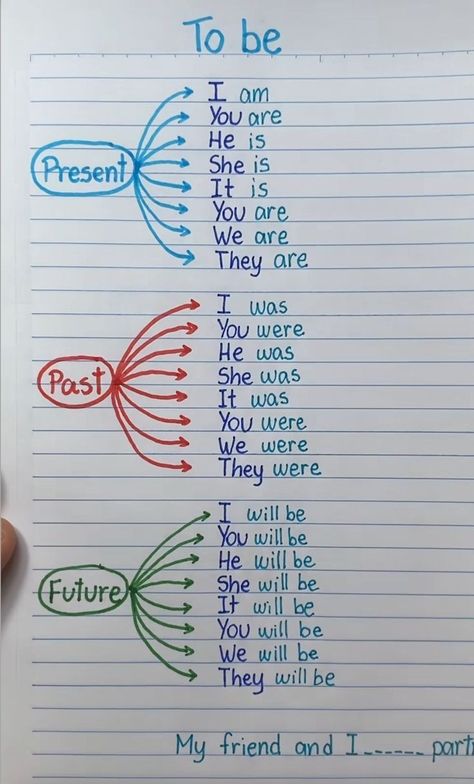 To be
Present
I am
You are
He is
She is
It is
You are
We are
They are
Past
I was
You were
He was
She was
It was
You were
We were
They were
Future
I will be
You will be
He will be
She will be
It will be
You will be
We will be
They will be
My friend and I ------ part